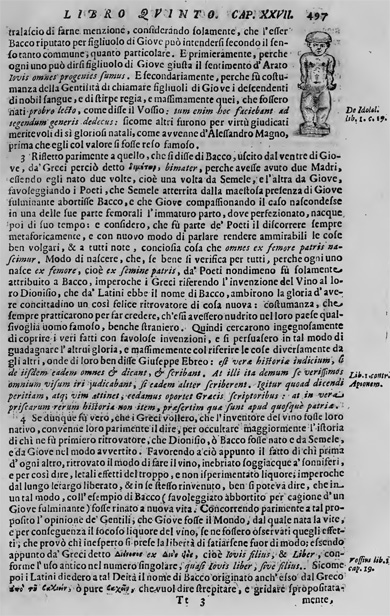 LIBRO QVINTO. CAP. XXVII. 497
tralascio di farne menzione, considerando solamente, che l'esser
Bacco riputato per figliuolo di Giove può intendersi secondo il sen-
so tanto commune, quanto particolare. E primieramente, perche
ogni uno può dirsi figliuolo di Giove giusta il sentimento d'Arato
Iovis omnes progenies sumus. E secondariamente, perche fù costu-
manza della Gentilità di chiamare figliuoli di Giove i descendenti
di nobil sangue, e di stirpe regia, e massimamente quei, che fossero
nati probro lecto, come disse il Vossio: sum enim hoc faciebant ad
tegendum generis dedecus: sicome altri furono per virtù giudicati
meritevoli di sì gloriosi natali, come avvenne d'Alessandro Magno,
prima che egli col valore si fosse reso famoso.
De Idolol.
lib. 1. c. 19.
3 Rifletto parimente a quello, che si disse di Bacco, uscito dal ventre di Gio-
ve, da' Greci perciò detto bimater, perche avesse avuto due Madri,
essendo egli nato due volte, cioè una volta da Semele, e l'altra da Giove,
favoleggiando i Poeti, che Semele atterrita dalla maestosa presenza di Giove
fulminante abortisse Bacco, e che Giove compassionando il caso nascondesse
in una delle sue parte femorali l'immaturo parto, dove perfezionato, nacque
poi di suo tempo: e considero, che fù parte de' Poeti il discorrere sempre
metaforicamente, e con nuovo modo di parlare rendere ammirabili le cose
ben volgari, & a tutti note, conciosia cosa che omnes ex femore patris na-
scimur. Modo di nascere, che, se bene si verifica per tutti, perche ogni uno
nasce ex femore, cioè ex semine patris, da' Poeti nondimeno fù solamente
attribuito a Bacco, imperoche i Greci riferendo l'invenzione del Vino al lo-
ro Dionisio, che da' Latini ebbe il nome di Bacco, ambirono la gloria d'ave-
re concitadino un così felice ritrovatore di cosa nuova: costumanza, che
sempre pratticarono per far credere, ch'essi avessero nudrito nel loro paese qual-
sivoglia uomo famoso, benche straniero. Quindi cercarono ingegnosamente
di coprire i veri fatti con favolose invenzioni, e si persuasero in tal modo di
guadagnare l'altrui gloria, e massimamente col riferire le cose diversamente da
gli altri, onde di loro ben disse Giuseppe Ebreo: est vera historia indicium, si
de iisdem eadem omnes & dicant, & scribant. At illi ita demum se verissimos
omnium visum iri judicabant, si eadem aliter scriberent. Igitur quoad dicendi
peritiam, atq; vim attinet, cedamus oportet Græcis scriptoribus: at in vera
priscarum rerum historia non item, præsertim qua sunt apud quosque patria.
Lib. 1. contr.
Apionem.
4 Se dunque fù vero, che i Greci vollero, che l'inventore del vino fosse loro
nativo, convenne loro parimente il dire, per occultare maggiormente l'istoria
di chi ne fù primiero ritrovatore, che Dionisio, ò Bacco fosse nato e da Semele,
e da Giove nel modo avvertito. Favorendo a ciò appunto il fatto di chi prima
d'ogni altro, ritrovato il modo di fare il vino, inebriato soggiacque a' sonniferi,
e per così dire, letali effetti del troppo, e non isperimentato liquore; imperoche
dal lungo letargo liberato, & in se stesso rinvenuto, ben si poteva dire, che in
un tal modo, coll'esempio di Bacco (favoleggiato abbortito per cagione d'un
Giove fulminante) fosse rinato a nuova vita. Concorrendo parimente a tal pro-
posito l'opinione de' Gentili, che Giove fosse il Mondo, dal quale nata la vite,
e per conseguenza il focoso liquore del vino, se ne fossero osservati quegli effet-
ti, che provò chi inesperto si prese la libertà di satiarsene fuor di modo; essendo
appunto da' Greci detto cioè Iovis filius, & Liber, con-
forme l'uso antico nel numero singolare, quasi Iovis liber, sive filius. Sicome
poi i Latini diedero a tal Deità il nome di Bacco originato anch'esso dal Greco
ò pure che vuol dire strepitare, e gridare spropositata-
Vossius lib. 1
cap. 19.
Tt 3 mente,